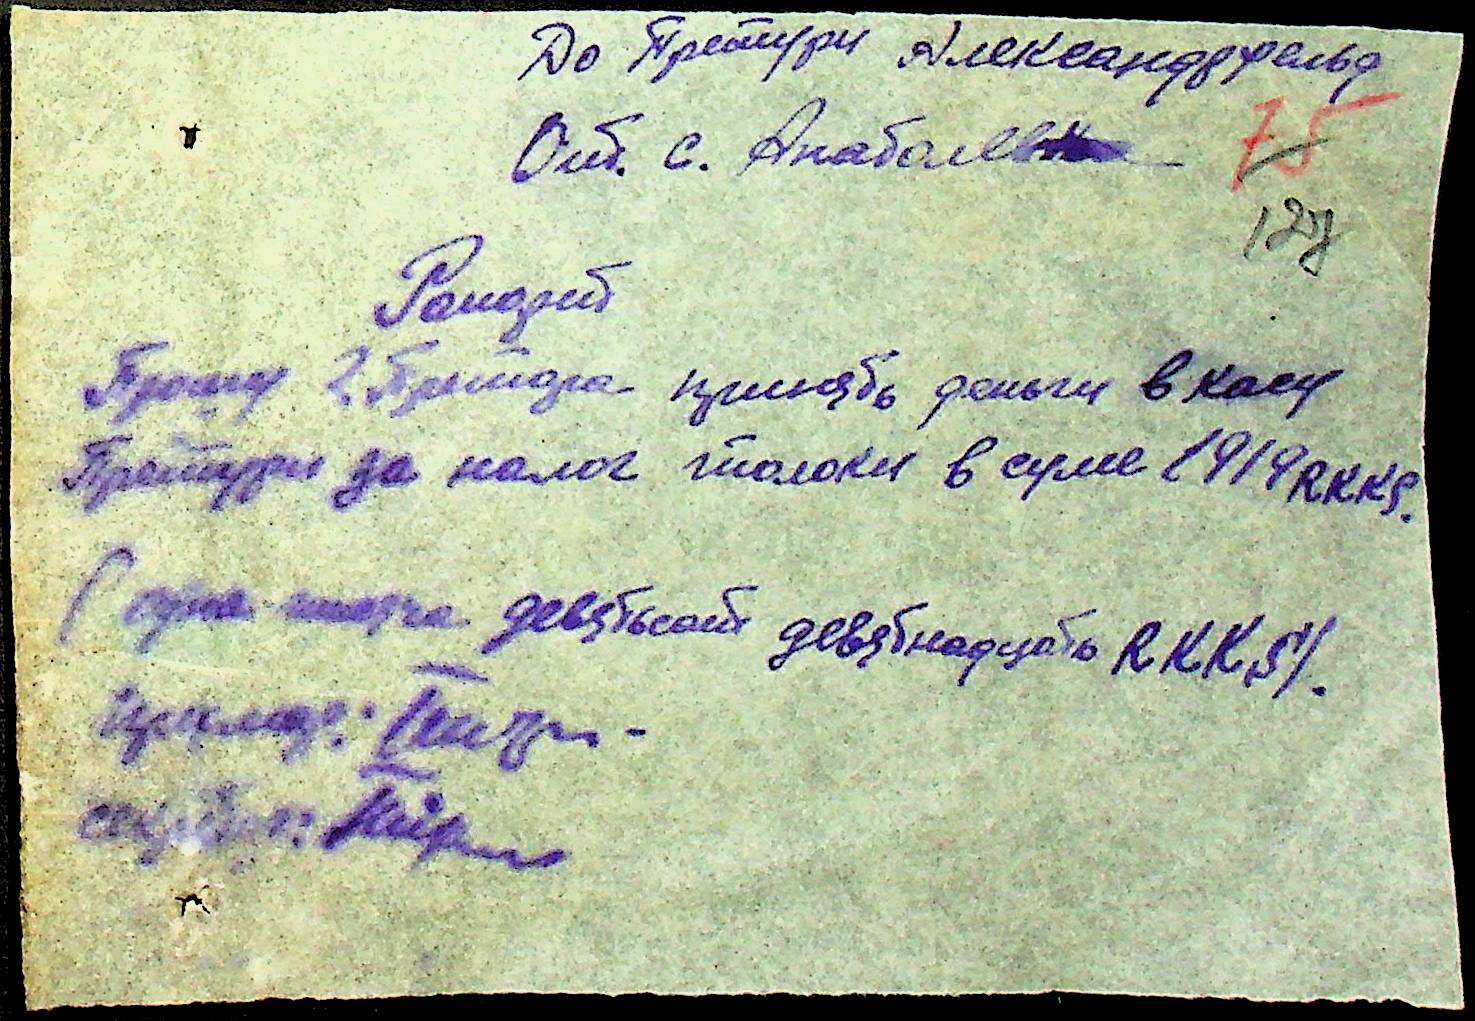 До Претури Александрфельд
От. с. Анатоле
75
127
Рапорт
Прошу г. Претора принять деньги в касу
Претури за налог толоки в суме 1919 RKKS.
(одна тисяча девятьсот девятнадцать RKKS).
Примар:
секретар: